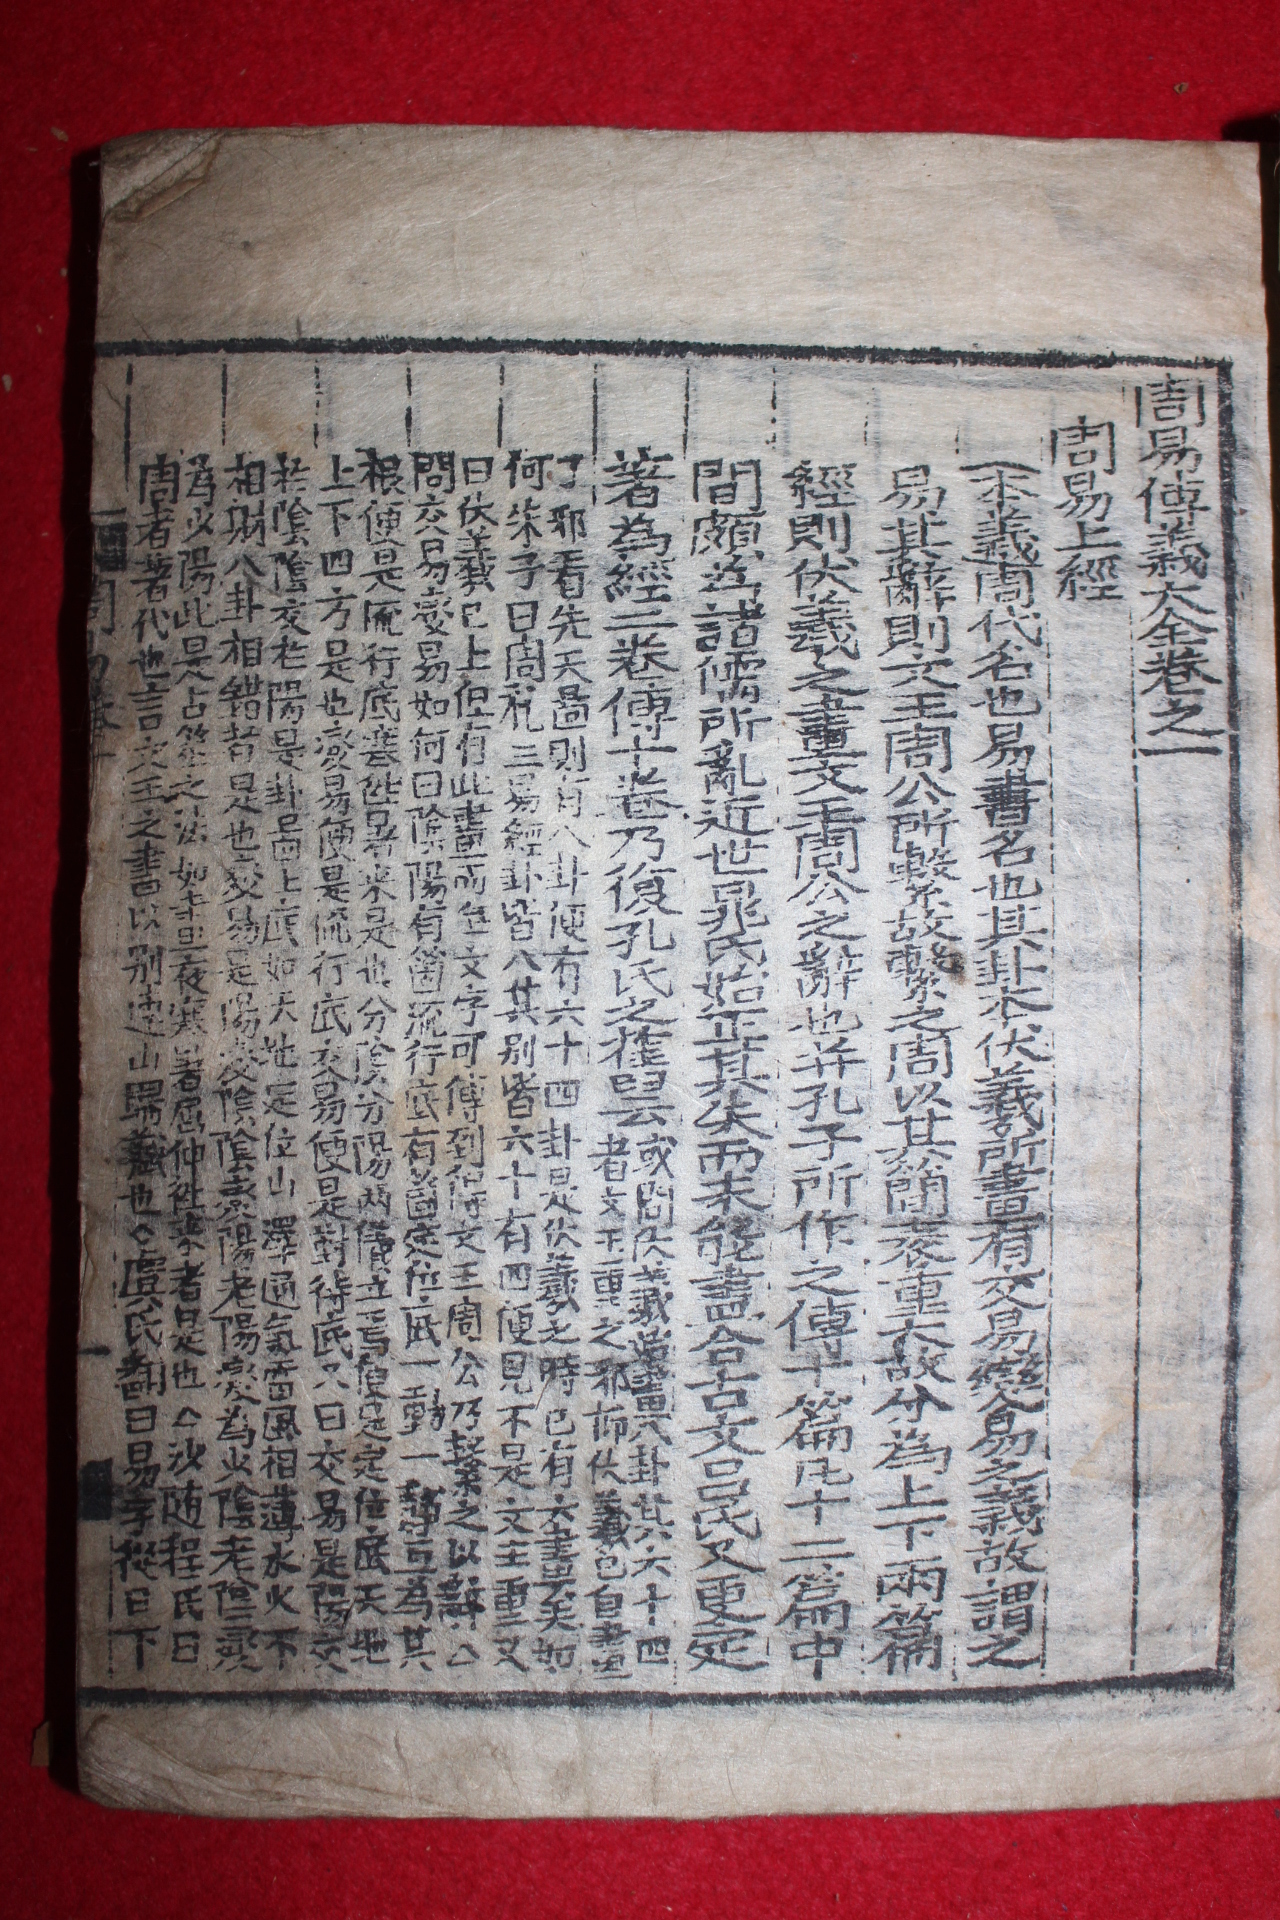 周易傳義大全卷之一
周易上經
本義周代名也易書名也其卦本伏羲所畫有交易變易之義故謂之
易其辭則文王周公所繫故繫之周以其簡袠重大故分為上下兩篇
經則伏羲之畫文王周公之辭也并孔子所作之傳十篇凡十二篇中
間頗為諸儒所亂近世晁氏始正其失而未能盡合古文呂氏又更定
著為經二卷傳十卷乃復孔氏之舊云
或問伏羲始畫八卦其六十四
者文王重之邪抑伏羲已自畫
了邪看先天圖則有八卦便有六十四卦是伏羲之時已有六畫矣如
何朱子曰周礼三易經卦皆八其別皆六十有四便見不是文王重又
曰伏羲已上但有此畫而無文字可傳到得文王周公乃繫之以辭△
問交易變易如何曰陰陽有箇流行底有箇定位底一動一靜互為其
根便是流行底寒暑往來是也分陰分陽兩儀立焉便是定位底天地
上下四方是也變易便是流行底交易便是對待底又曰交易是陽交
於陰陰交於陽是卦圖上底如天地定位山澤通氣雷風相薄水火不
相射八卦相錯者是也變易是陽變陰陰變陽老陽變為少陰老陰變
為少陽此是占筮之法如晝夜寒暑屈伸徃來者是也△沙随程氏曰
周者著代也言文王之書以别連山歸藏也△虞氏翻曰易字從日下